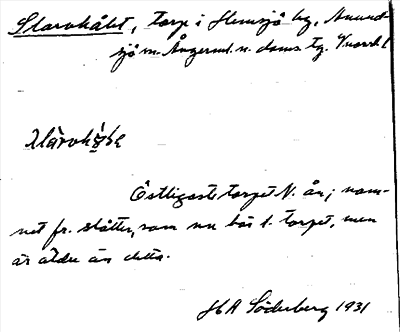 Slarvhålet, torp i Hemsjö by, Anund-
sjö sn. Ångerml. n. doms. tg. V norrl. l
slàrvhó̱ɫe
Östligaste torpet N. ån; nam-
net fr. slåtter, som nu hör t. torpet, men
är äldre än detta.
H A Söderberg 1931